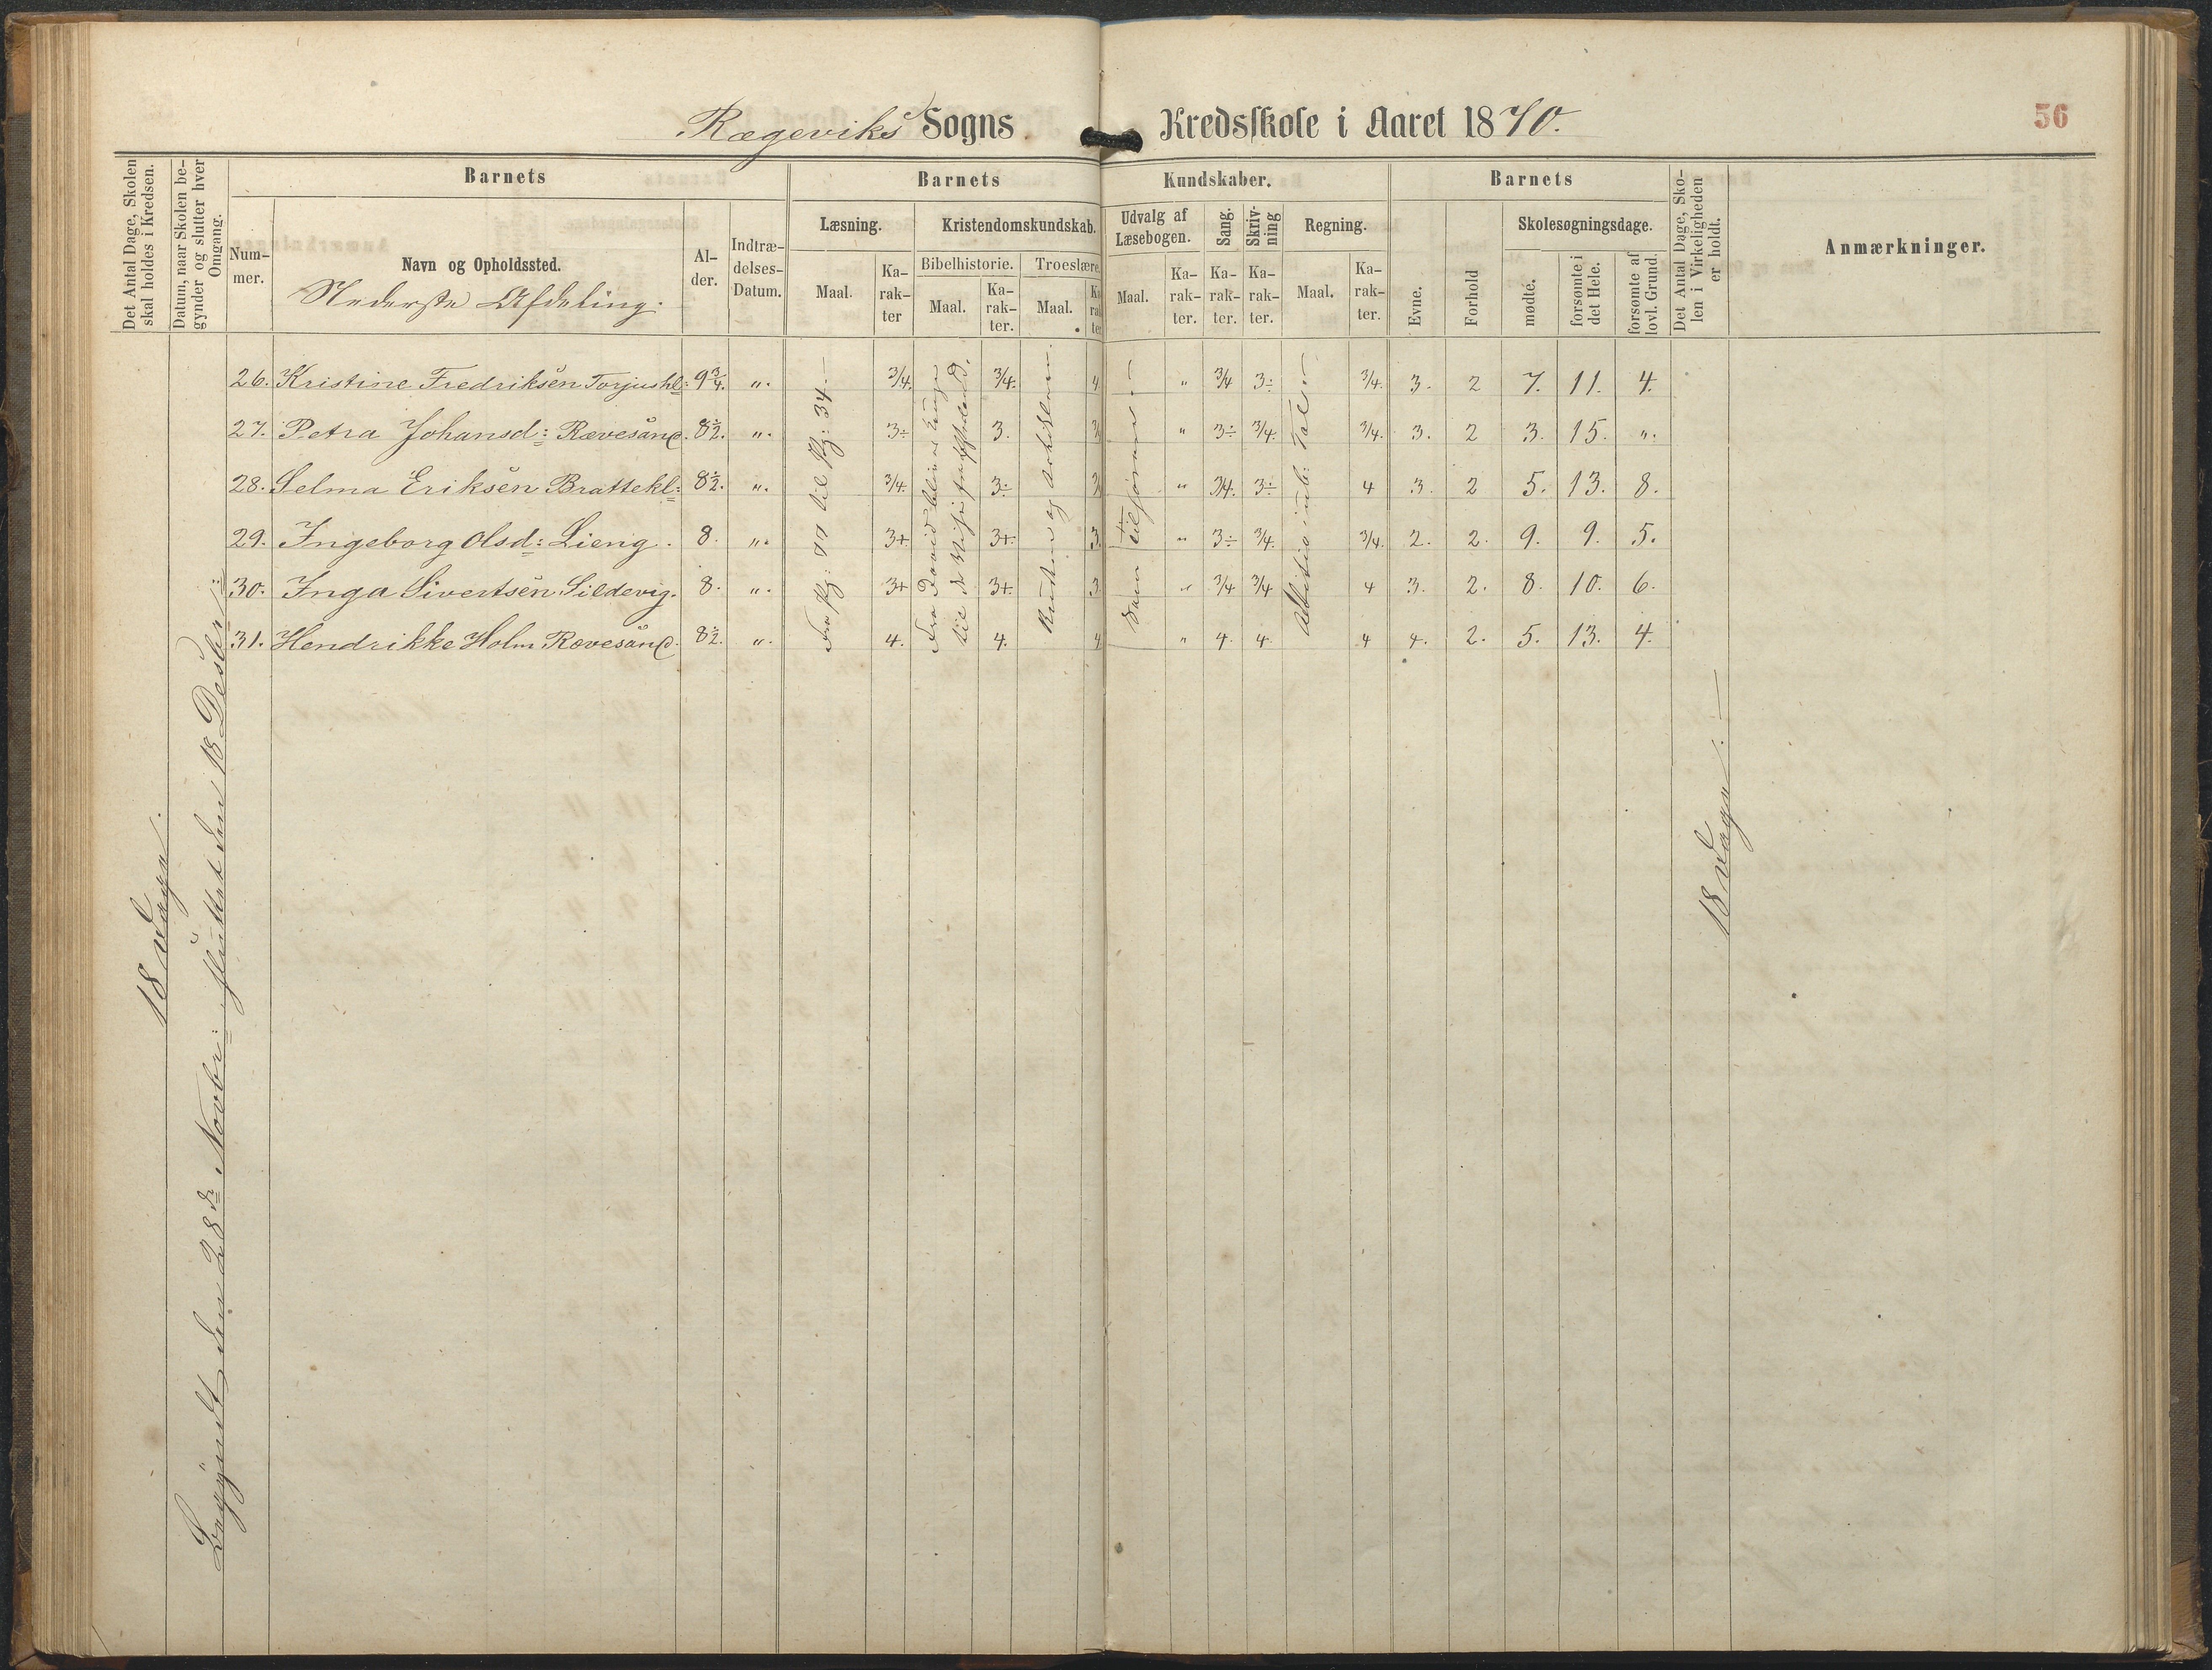 Rægeviks Sogns Kredsskole i Aaret 1870.
56
Det Antal Dage, Skolen skal holdes i Kredsen.
Datum, naar Skolen begynder og slutter hver Omgang.
Barnets
Nummer.
Navn og Opholdssted.
Nederste Afdeling.
Alder.
Indtrædelses-Datum.
Barnets Kundskaber.
Læsning. Maal. Karakter
Kristendomskundskab.
Bibelhistorie. Maal. Karakter.
Troeslære. Maal. Karakter.
Udvalg af Læsebogen. Maal. Karakter.
Sang. Karakter.
Skrivning Karakter.
Regning. Maal. Karakter.
Barnets
Evne.
Forhold
Skolesøgningsdage.
mødte.
forsømte i det Hele.
forsømte af lovl. Grund.
Det Antal Dage, Skolen i Virkeligheden er holdt.
Anmærkninger.
26. Kristine Fredriksen Torjushl: 9 3/4. ". 3/4. 3/4. 4 " 3/4 3÷ 3/4. 3. 2 7. 11. 4.
27. Petra Johansd: Rævesand. 8½. ". 3÷ 3. " 3÷ 3/4. 3/4. 3. 2 3. 15. ".
28. Selma Eriksen Brattekl: 8½. ". 3/4. 3÷ " 3/4. 3÷ 4 3. 2 5. 13. 8.
29. Ingeborg Olsd: Lieng. 8. ". 3+ 3+ 3. " 3÷ 3/4. 3/4. 2. 2. 9. 9. 5.
30. Inga Sivertsen Sildevig. 8. ". 3+ 3+ 3. " 3/4 3/4 4 3. 2. 8. 10. 6.
31. Hendrikke Holm Rævesand. 8½. ". 4. 4. 4 " 4. 4. 4 4. 2. 5. 13. 4.
18 Dage.
Begyndt den 28de Novbr: sluttet den 18 Desbr:
Fra Pg: 11 til Pg: 34.
Fra David bliver Konge
til de
og
Som tilforn.
Addition i ub: Tal
18 Dage.